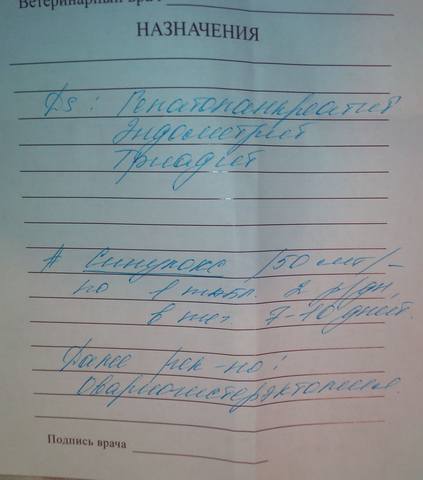 Ветеринарный врач
НАЗНАЧЕНИЯ
Ds: Гепатопанкреатит
Эндометрит
Триадит
# Синулокс /50 мг/ –
по 1 табл. 2 р/дн,
в теч. 7-10 дней.
Далее рек-но:
Овариогистерэктомия.
Подпись врача